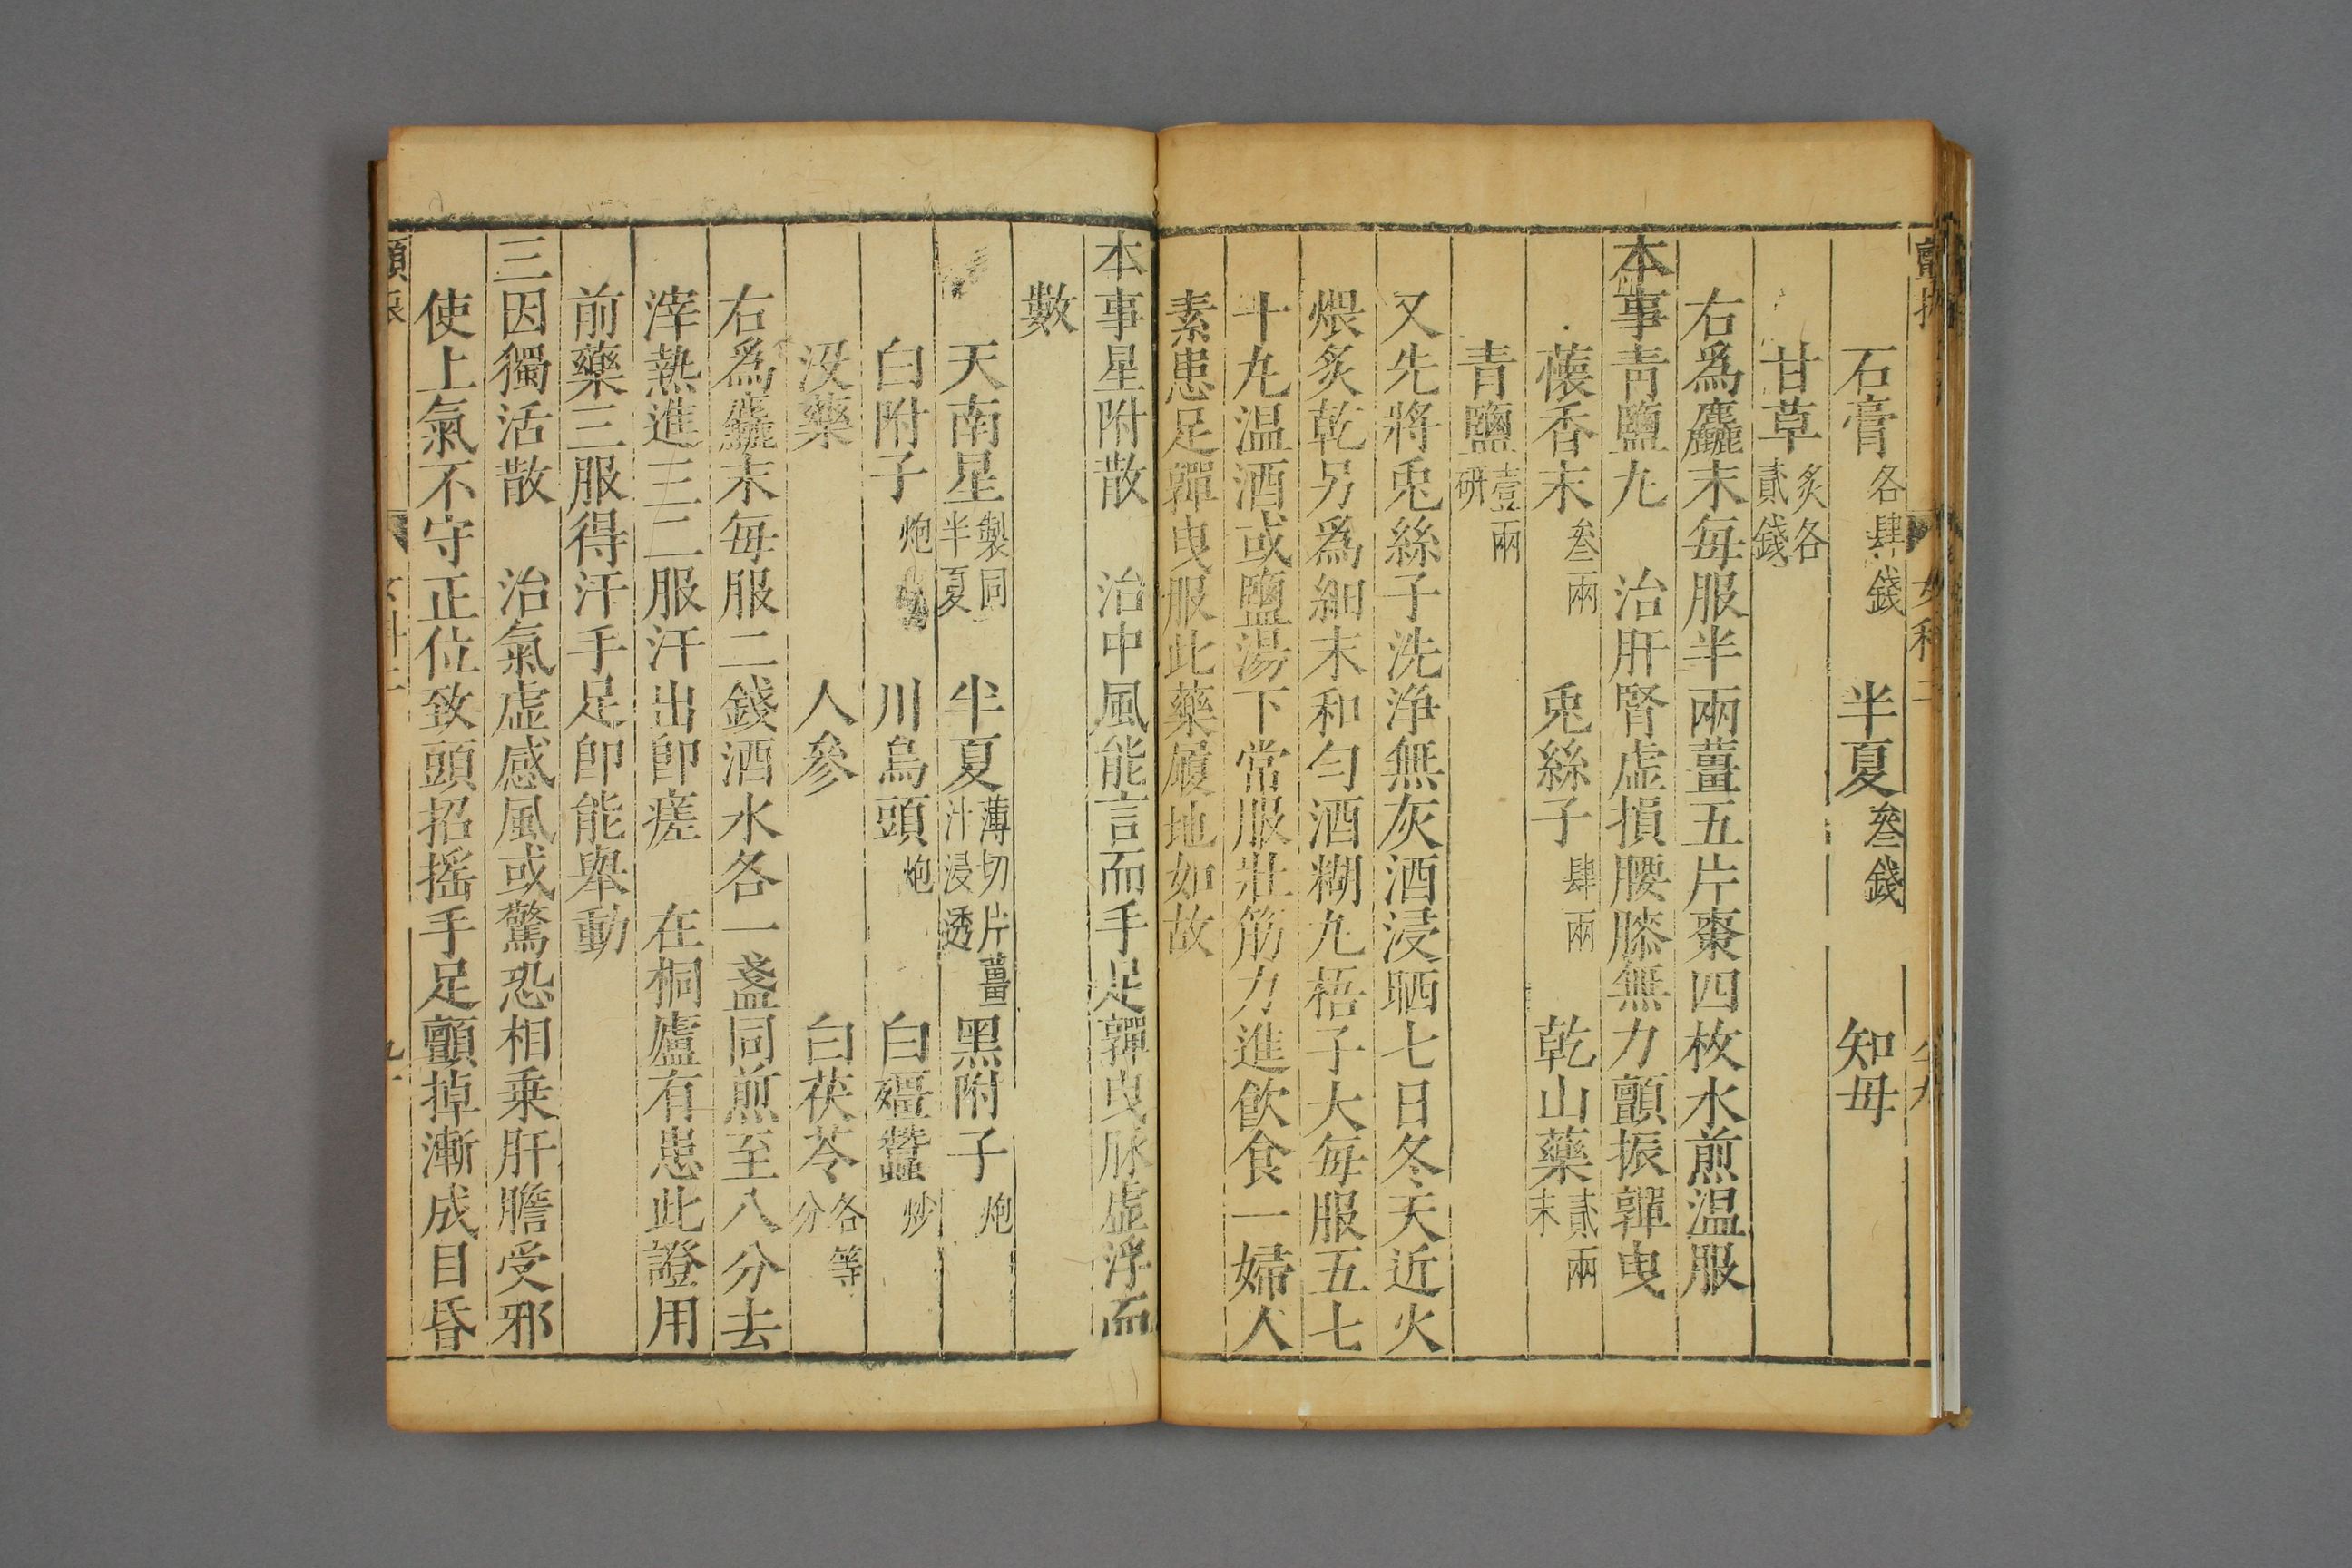 石膏各肆錢 半夏叄錢 知母
甘草炙各貳錢
右爲麤末每服半兩薑五片棗四枚水煎温服
本事靑鹽丸 治肝腎虚損腰膝無力顫振軃曳
蘹香末叁兩 兎絲子肆兩 乾山藥貳兩末
青鹽壹兩研
又先將兎絲子洗浄無灰酒浸晒七日冬天近火
煨炙乾另爲細末和勻酒糊丸梧子大每服五七
十丸温酒或鹽湯下常服壯筋力進飮食一婦人
素患足軃曳服此藥履地如故
本事星附散 治中風能言而手足軃曳脉虚浮而
數
天南星製同半夏 半夏薄切片薑汁浸透 黑附子炮
白附子炮 川烏頭炮 白殭蠶炒
没藥 人參 白茯苓各等分
右爲麤末每服二錢酒水各一盞同煎至八分去
滓熱進三二服汗出卽瘥 在桐廬有患此證用
前藥三服得汗手足卽能舉動
三因獨活散 治氣虚感風或驚恐相乗肝膽受邪
使上氣不守正位致頭招摇手足顫掉漸成目昏